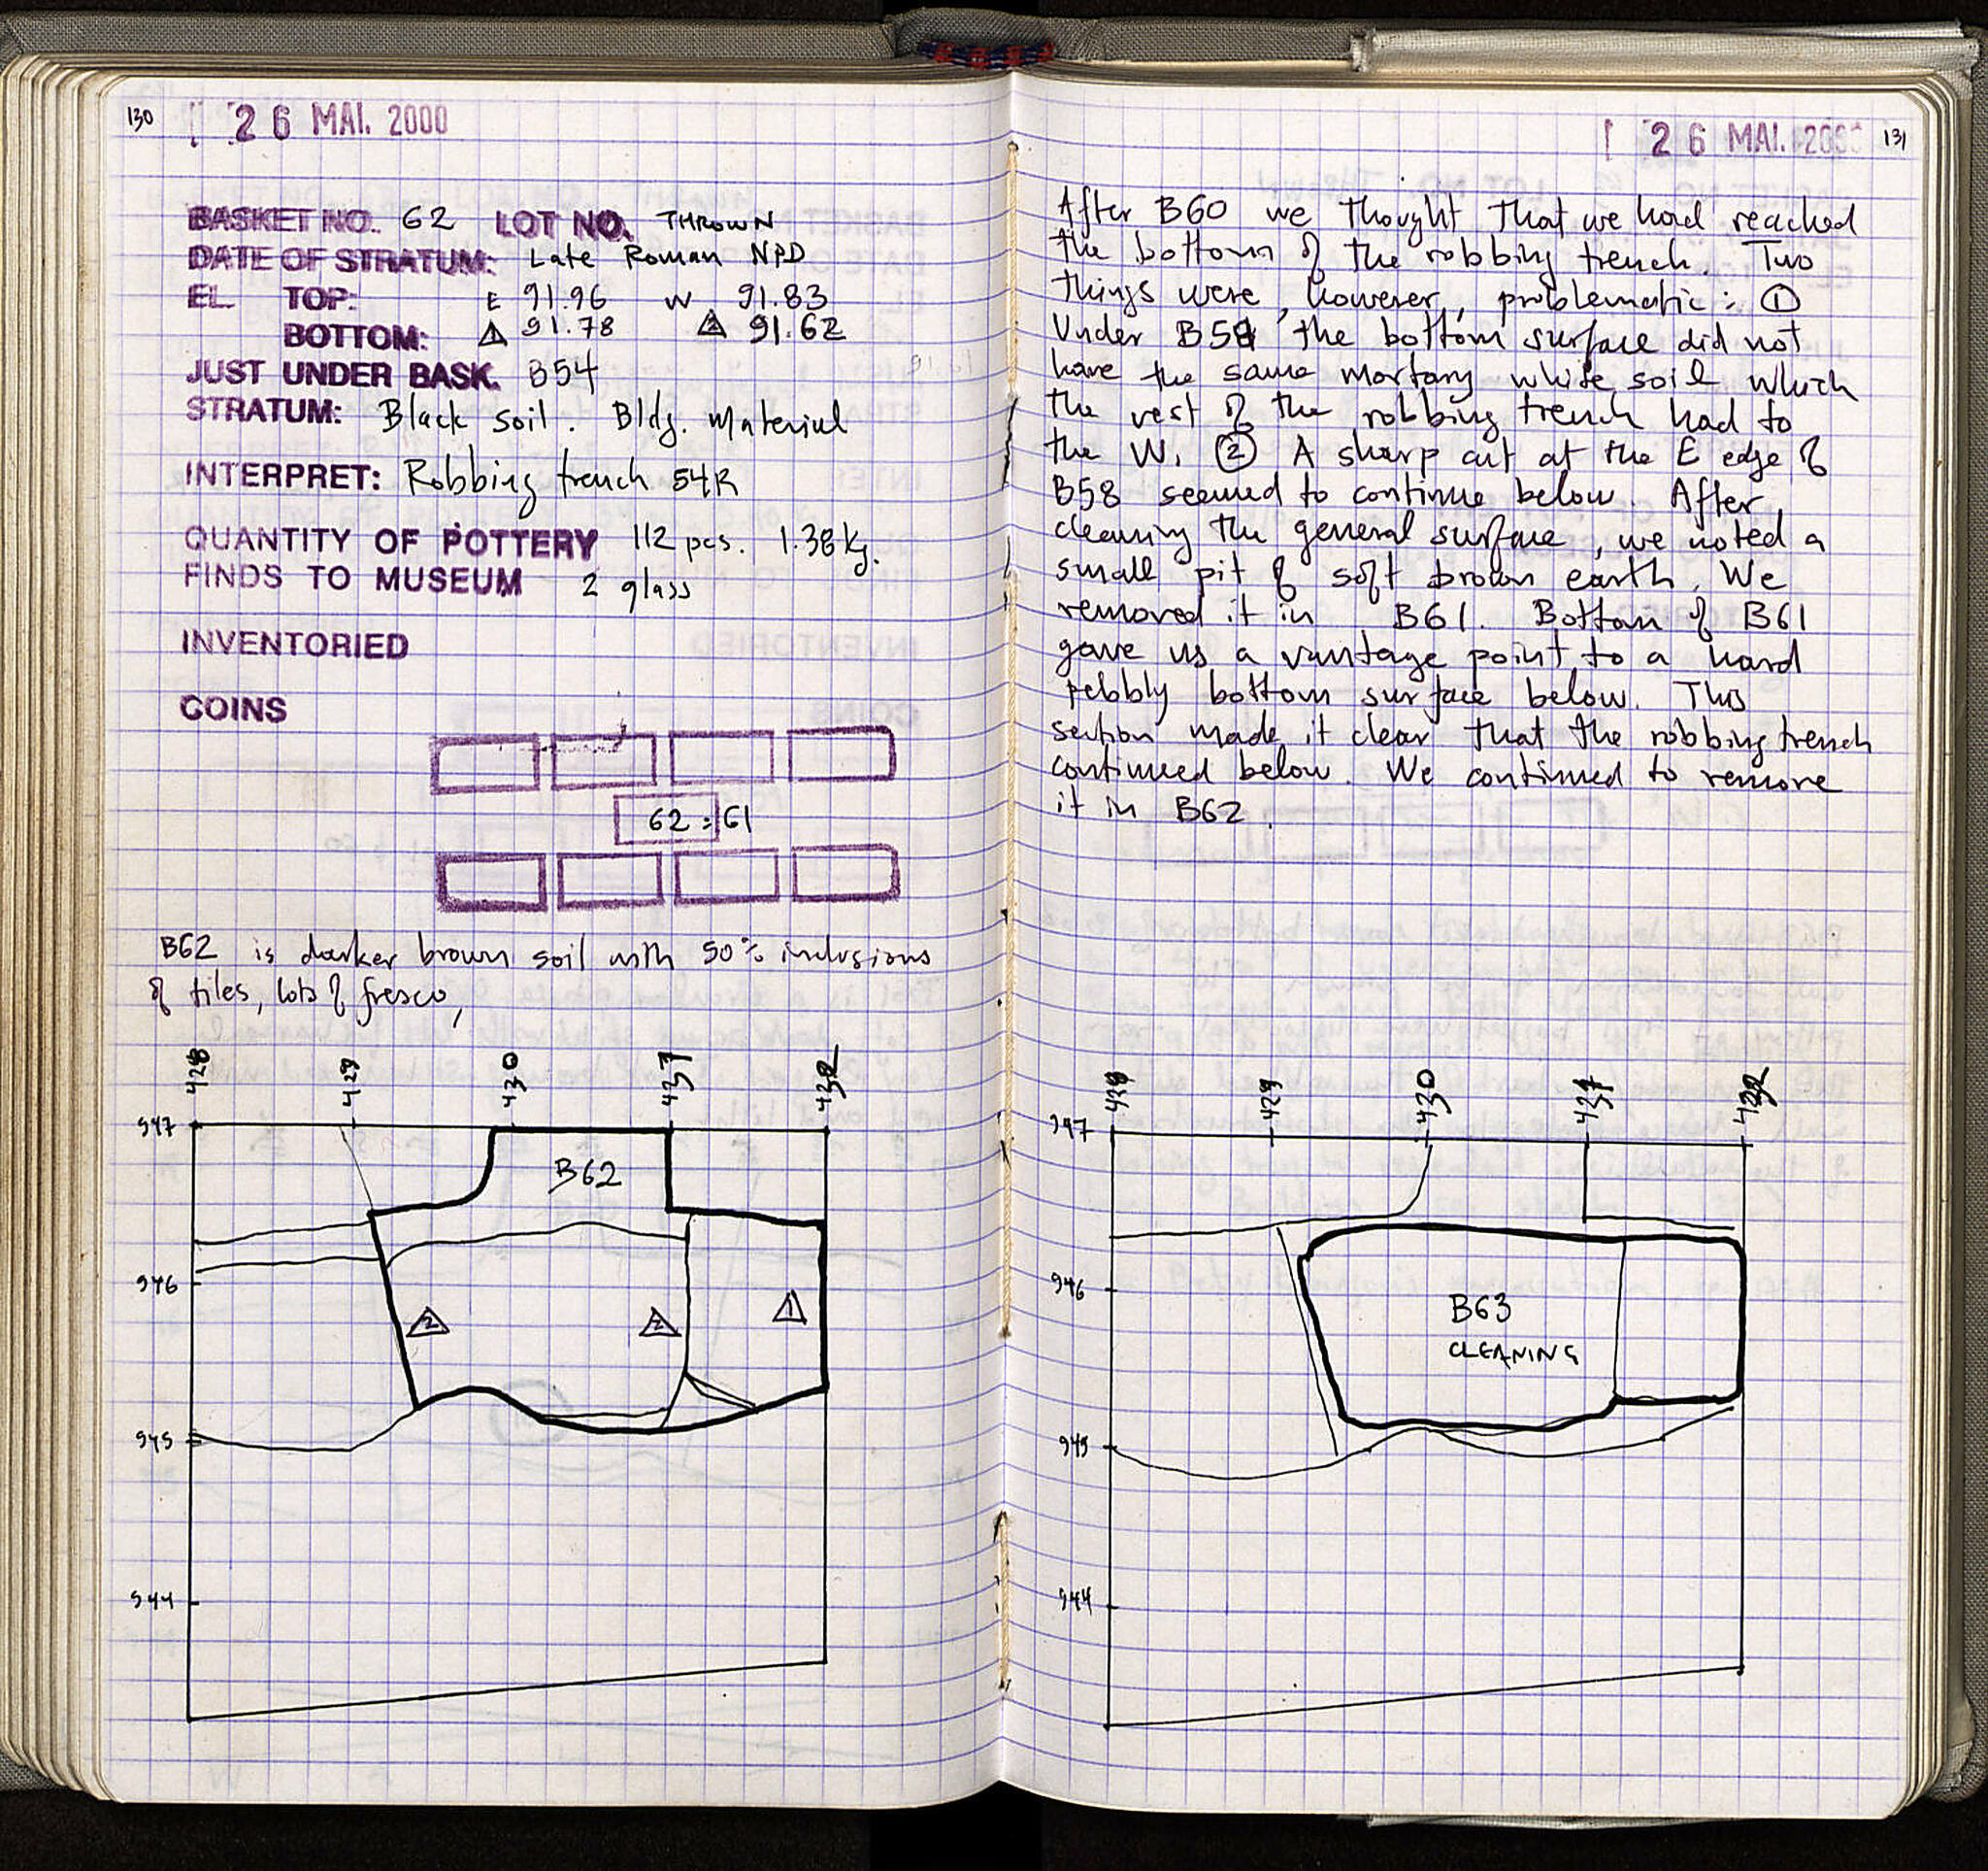 130
26 MAI. 2000
BASKET NO. 62 LOT NO. THROWN
DATE OF STRATUM: Late Roman NPD
EL. TOP: E 91.96 W 91.83
BOTTOM: 1 91.78 2 91.62
JUST UNDER BASK. B54
STRATUM: Black soil. Bldg. Material
INTERPRET: Robbing trench 54R
QUANTITY OF POTTERY 112 pcs. 1.38 kg.
FINDS TO MUSEUM 2 glass
INVENTORIED
COINS
62 : 61
B62 is darker brown soil with 50% inclusions
of tiles, lots of fresco,
428 429 430 431 432
947
B62
946
2 2 1
945
944
26 MAI. 131
After B60 we thought that we had reached
the bottom of the robbing trench. Two
things were, however, problematic: 1
Under B54 the bottom surface did not
have the same mortary white soil which
the rest of the robbing trench had to
the W. 2 A sharp cut at the E edge of
B58 seemed to continue below. After
cleaning the general surface, we noted a
small pit of soft brown earth. We
removed it in B61. Bottom of B61
gave us a vantage point to a hard
pebbly bottom surface below. This
section made it clear that the robbing trench
continued below. We continued to remove
it in B62.
428 429 430 431 432
947
946
B63
CLEANING
945
944